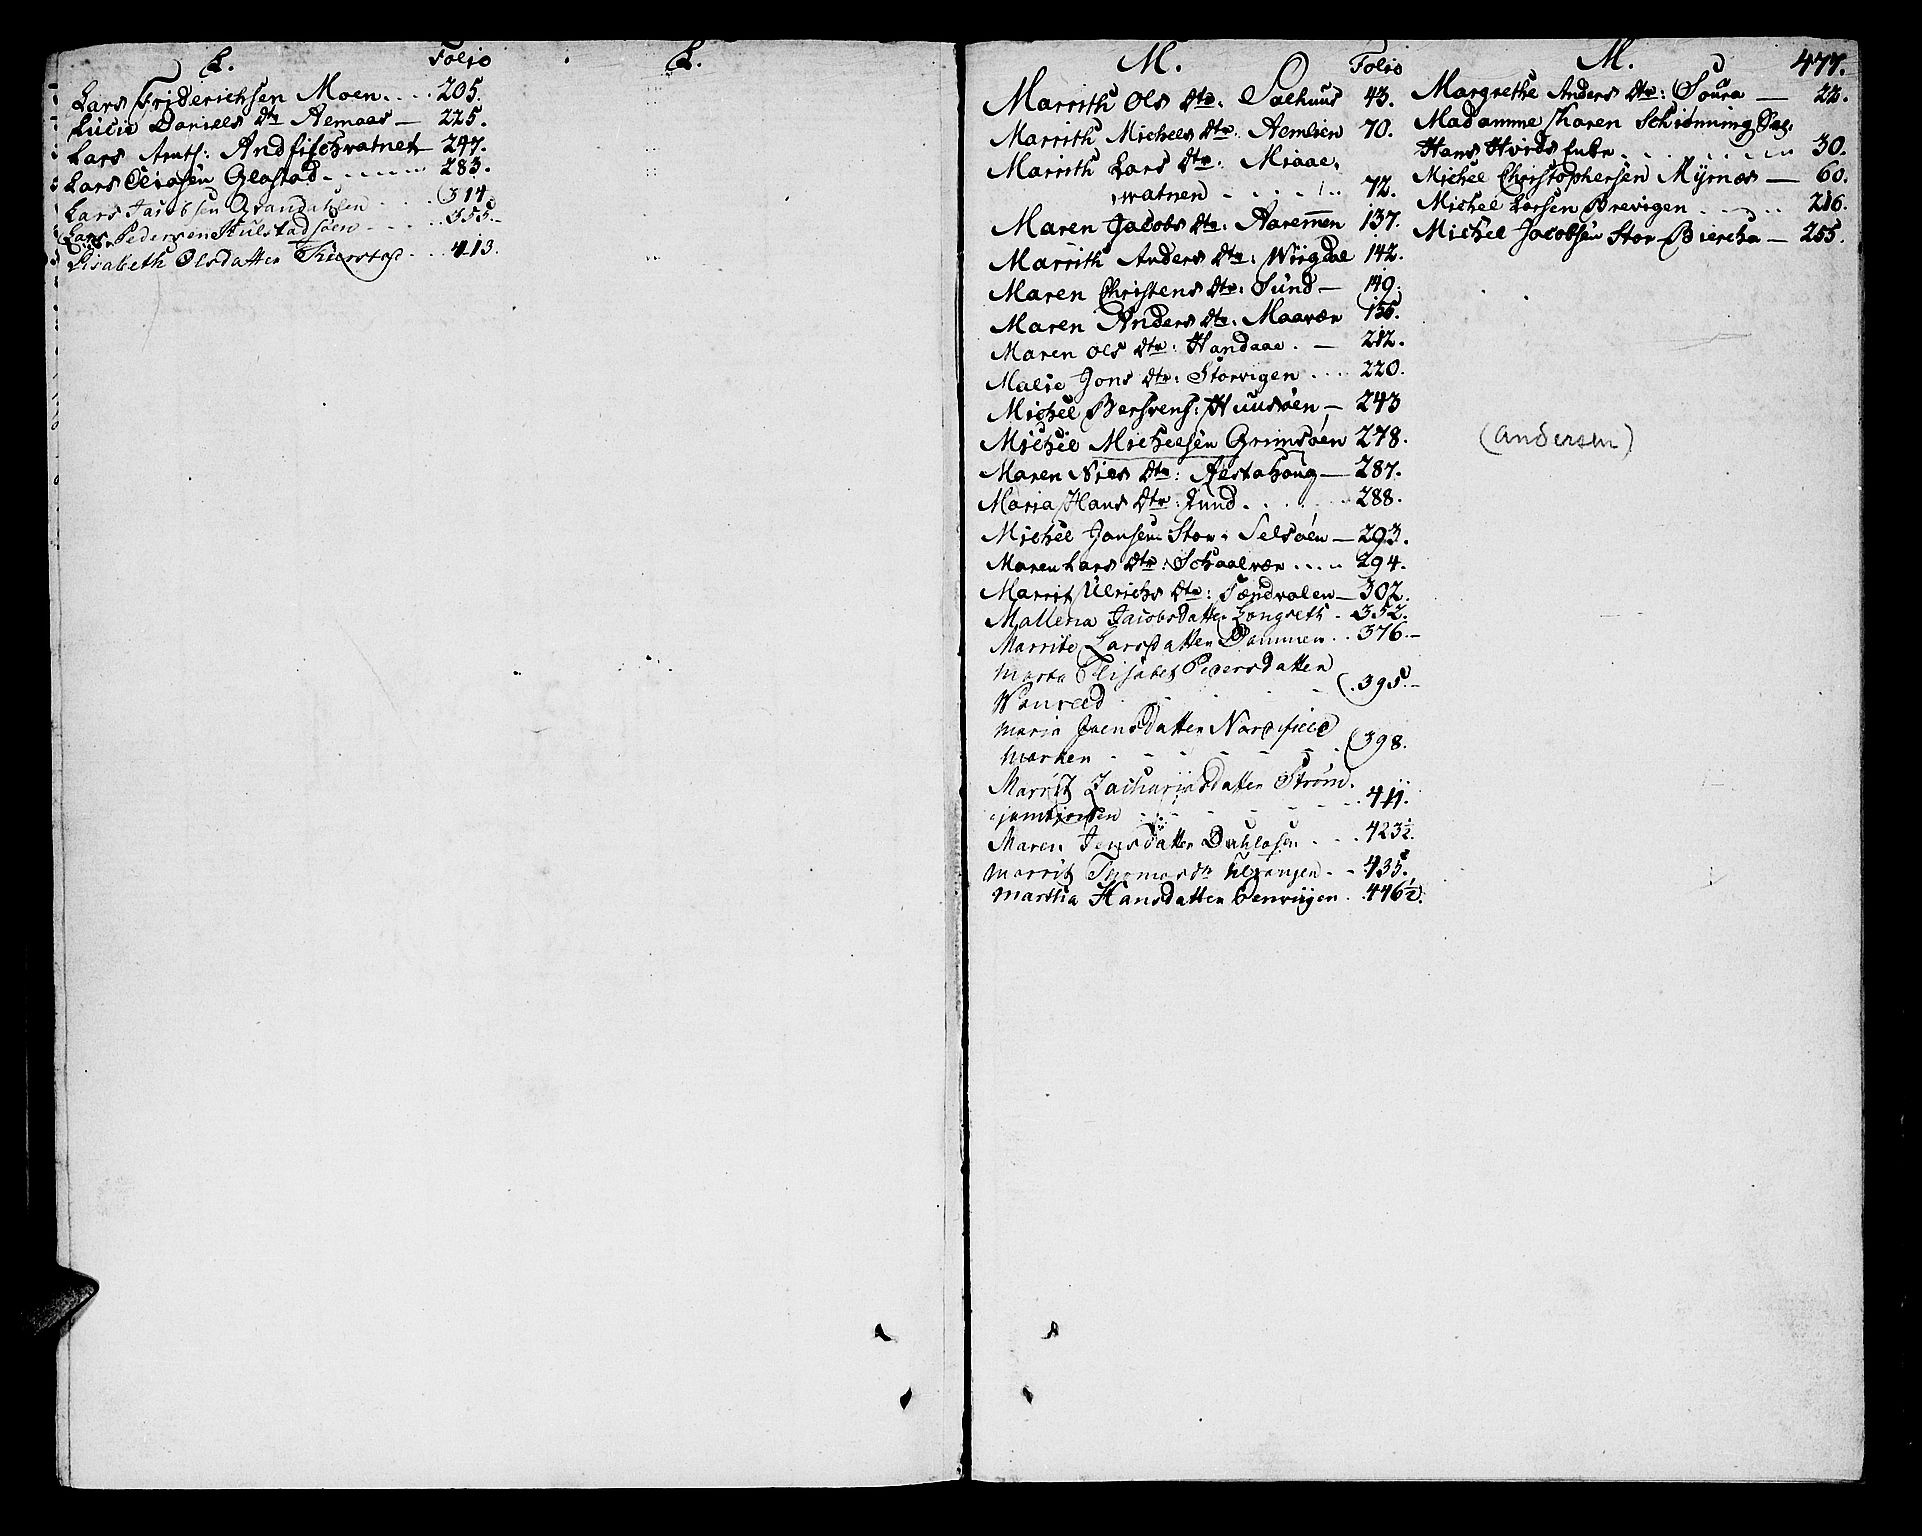 L. Folio L.
Lars Friderichsen Moen. . . . 205.
Lucia Daniels Dtr Aemaas — 225.
Lars Arntf: Andfischvatnet 247.
Lars Eliasen Glastad . . . . . . . 283.
Lars Jacobsen Grandahlen . . . . (314.
Lars Pedersen Hulstadsöen . . . . . 355.
Lisabeth Olsdatter Kierstad . . . 413.
M. Folio M. 477.
Marrith Ols Dtr: Salhuus 43.
Marrith Michels Dtr: Aemlien 70.
Marrith Lars Dtr: Miaae,
watnen . . . . 72.
Maren Jacobs Dtr: Aaremmen 137.
Marrith Anders Dtr: Wiigdal 142.
Maren Christens Dtr: Sund — 149.
Maren Anders Dtr: Maavær 155.
Maren Ols Dtr: Handaae . — 212.
Malie Jons Dtr: Storvigen . . . . 220.
Michel Bersvens: Huusöen — 243
Michel Michelsen Grimsöen 278.
Maren Niels Dtr: Alstahoug — 287.
Maria Hans Dtr: Lund . . . . . 288.
Michel Jonsen Stor- Selsöen — 293.
Maren Lars Dtr: Schaalvær . . . . 294.
Marrit Ulrichs Dtr: Sandvalen — 302.
Mallena Jacobsdatter Longseth . 352.
Marrite Larsdatter Dammen . . 376.—
Marta Elisabet Pedersdatter
(. 395.—
Maria Joensdatter Nordfield
Marken . . . . . (398.
Marrit Zachariasdatter Ström.
411.
Maren Jensdatter Dahlosen . . . . 423½.
Marrit Thomasdtr . . 435.
Martha Hansdatter . 446½.
Margrethe Anders Dtr: Soura — 22.
Madamme Karen Schiønning Sal.
Hans Hvids Enke . . . . . . . 30.
Michel Christophersen Myrnæs — 60.
Michel Larsen Brevigen . . . . . 216.
Michel Jacobsen Stor Biercha — 255.
(Andersen)